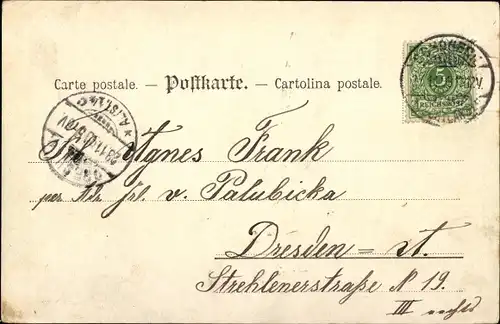 Carte postale. — Postkarte. — Cartolina postale.
5
REICHSPOST
Agnes Frank
per Adr. frl. v. Palubicka
Dresden = A.
Strehlenerstraße N 19.
III